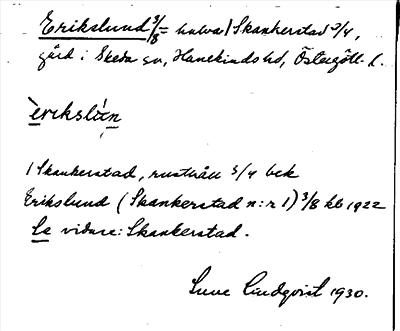 Erikslund 3/8 = halva / Skankerstad 3/4,
gård i Skeda sn, Hanekinds hd, Östergötl. l.
èrikslùn
/ Skankerstad, rusthåll 3/4 bek
Erikslund (Skankerstad n:r 1) 3/8 kb 1922
Se vidare: Skankerstad.
Sune Lindqvist 1930.